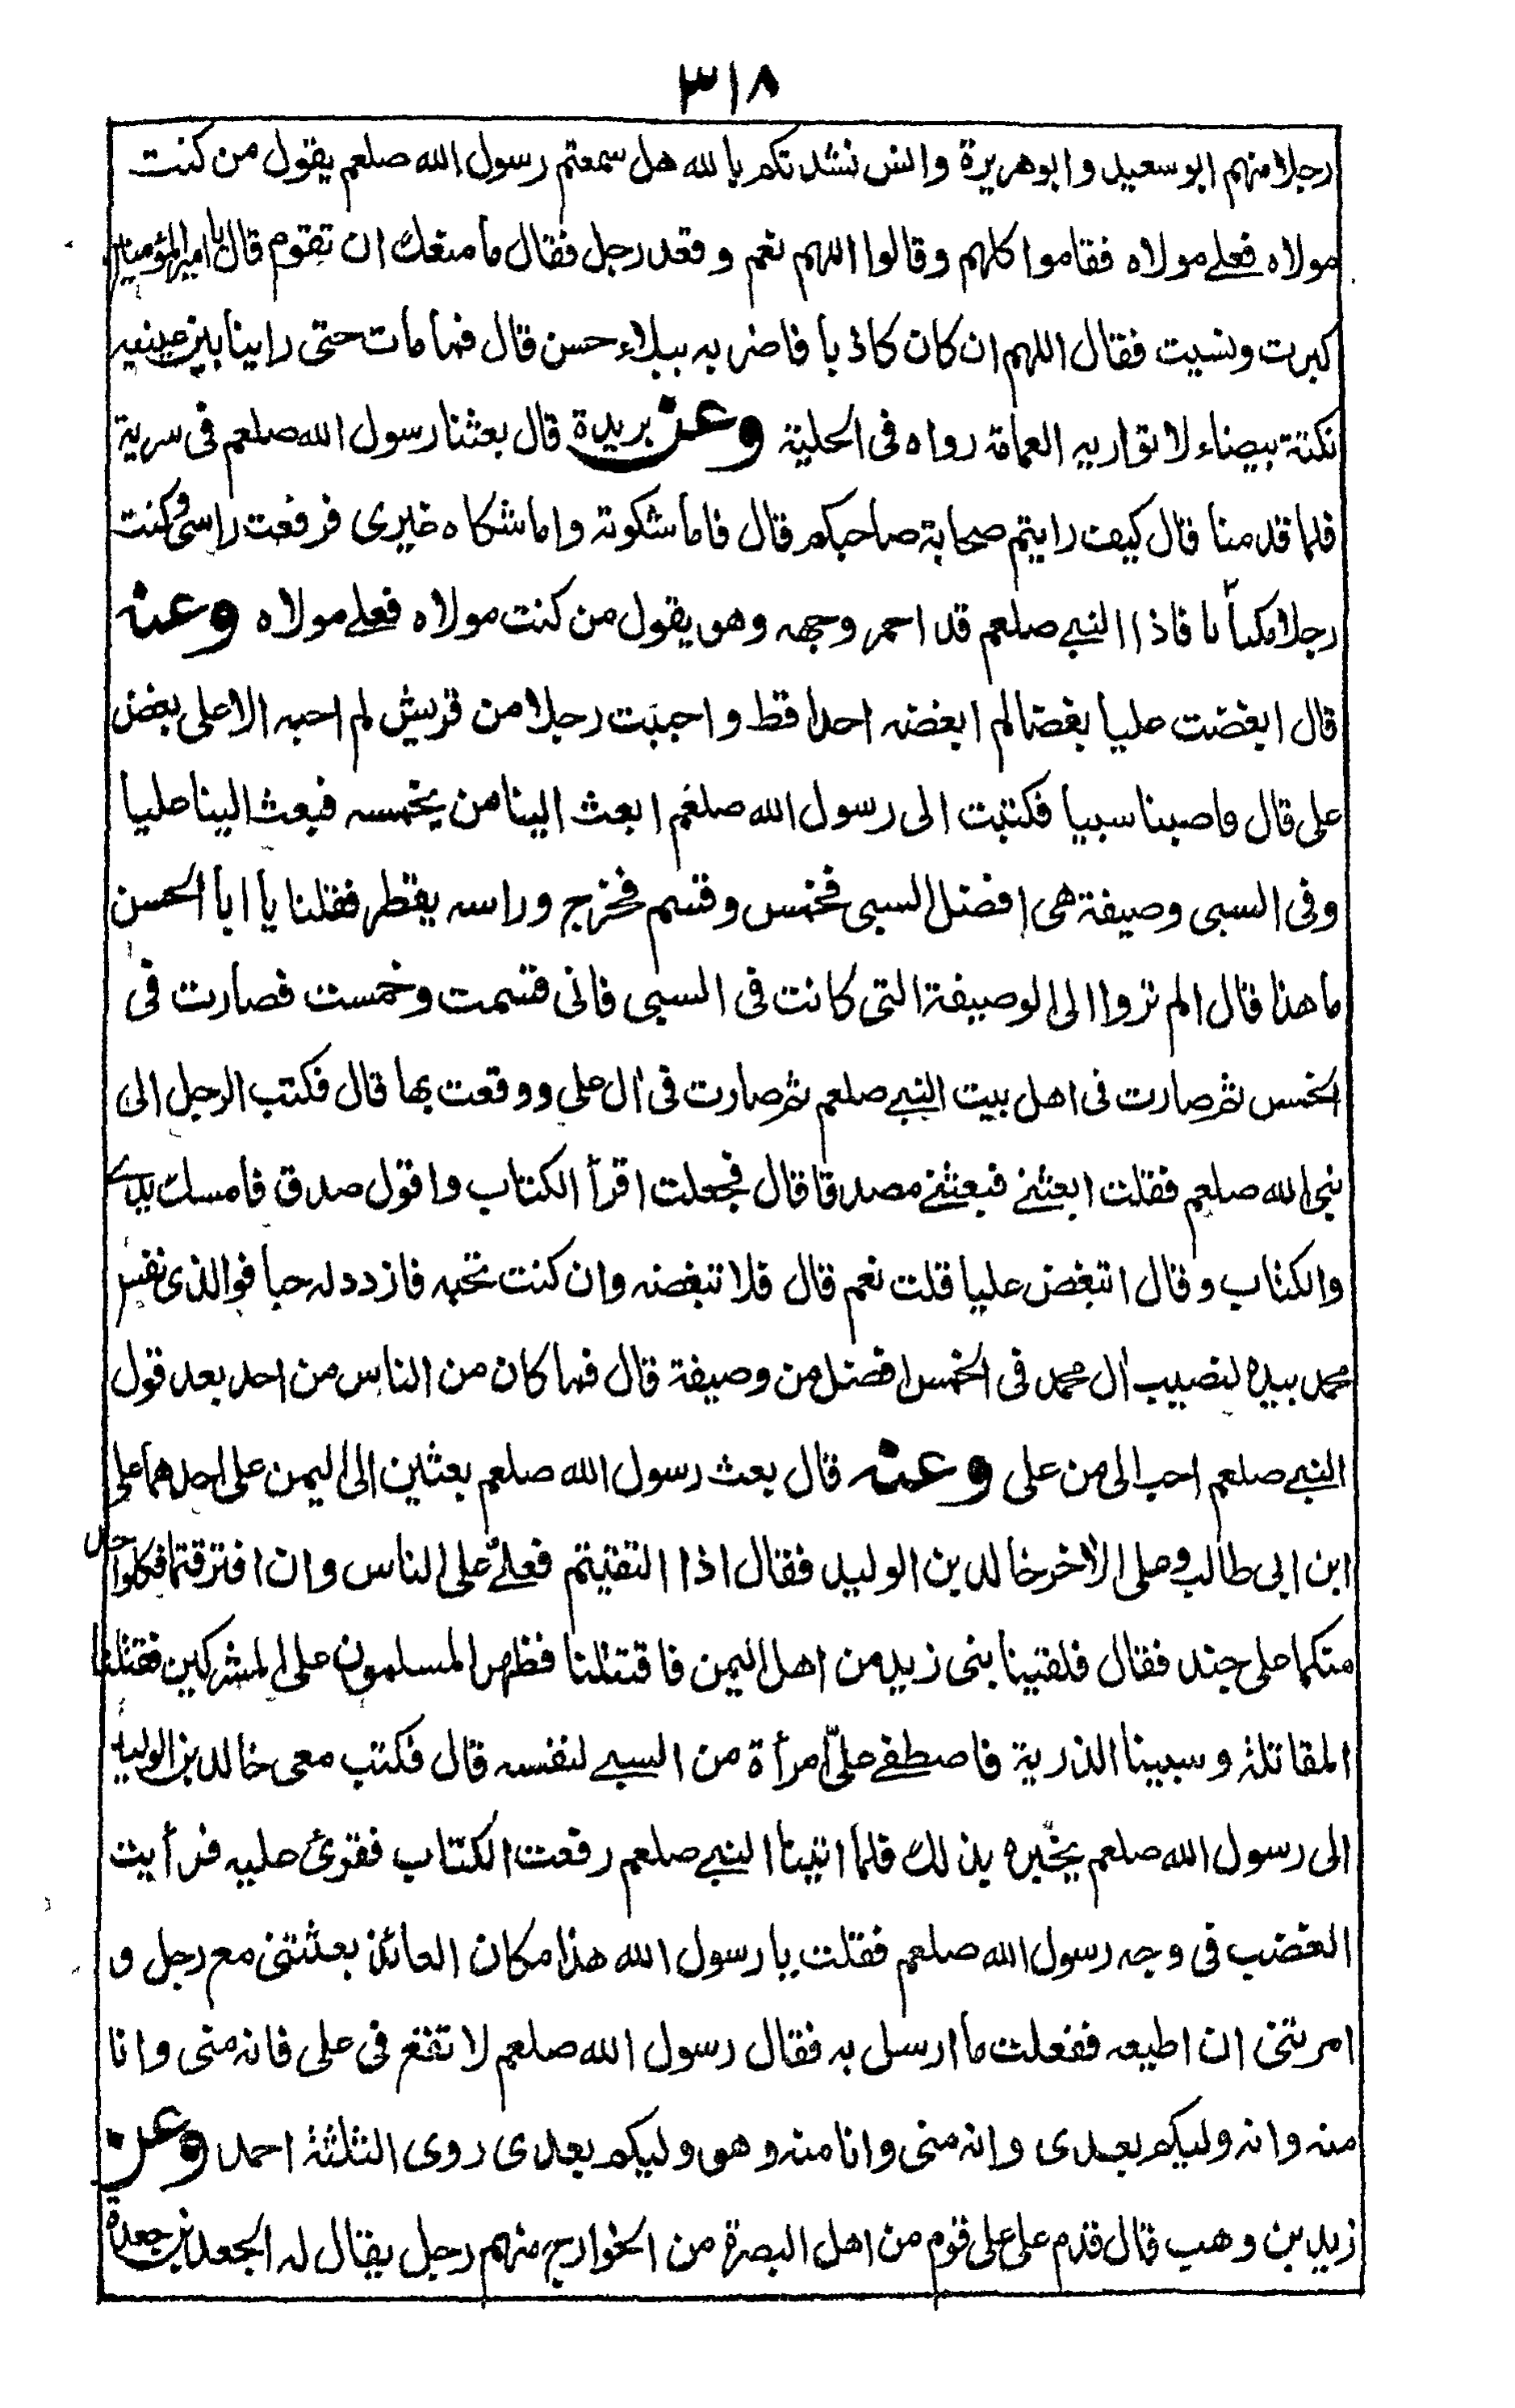 ٣١٨
رجلا منهم ابو سعيد وابو هريرة وانس نشدتكم بالله هل سمعتم رسول الله صلعم يقول من كنت
مولاه فعلے مولاه فقاموا كلهم وقالوا اللهم نعم وقعد رجل فقال ما منعك ان تقوم قال يا امير المؤمنين
كبرت ونسيت فقال اللهم ان كان كاذبا فاضربه ببلاء حسن قال فما مات حتى راينا بين عينيه
نكتة بيضاء لا تواريه العمامة رواه فى الحلية وعن بريدة قال بعثنا رسول الله صلعم فى سرية
فلما قدمنا قال كيف رايتم صحابة صاحبكم قال فاما شكوته واما شكاه غيرى فرفعت راسى وكنت
رجلا مكبابا فاذا النبے صلعم قد احمر وجهه وهو يقول من كنت مولاه فعلے مولاه وعنه
قال ابغضت عليا بغضا لم ابغضه احدا قط واحببت رجلا من قريش لم احبه الا على بغض
على قال واصبنا سبيا فكتبت الى رسول الله صلعم ابعث الينا من يخمسه فبعث الينا عليا
وفى السبى وصيفة هى افضل السبى فخمس وقسم فخرج وراسه يقطر فقلنا يا ابا الحسن
ما هذا قال الم تروا الى الوصيفة التى كانت فى السبى فانى قسمت وخمست فصارت فى
الخمس ثم صارت فى اهل بيت النبے صلعم ثم صارت فى ال على ووقعت بها قال فكتب الرجل الى
نبى الله صلعم فقلت ابعثنے فبعثنے مصدقا قال فجعلت اقرأ الكتاب واقول صدق فامسك يدے
والكتاب وقال اتبغض عليا قلت نعم قال فلا تبغضه وان كنت تحبه فازدد له حبا فوالذى نفس
محمد بيده لنصيب ال محمد فى الخمس افضل من وصيفة قال فما كان من الناس من احد بعد قول
النبے صلعم احب الى من على وعنه قال بعث رسول الله صلعم بعثين الى اليمن على احدهما على
ابن ابى طالب وعلى الاخر خالد بن الوليد فقال اذا التقيتم فعلےٌ على الناس وان افترقتما فكل واحد
منكما على جنده فقال فلقينا بنى زيد من اهل اليمن فاقتتلنا فظهر المسلمون على المشركين فقتلنا
المقاتلة وسبينا الذرية فاصطفے علىّ امرأة من السبے لنفسه قال فكتب معى خالد بن الوليد
الى رسول الله صلعم يخبره بذلك فلما اتينا النبے صلعم رفعت الكتاب فقرئ عليه فرأيت
الغضب فى وجه رسول الله صلعم فقلت يا رسول الله هذا مكان العائذ بعثتنى مع رجل و
امرتنى ان اطيعه ففعلت ما ارسل به فقال رسول الله صلعم لا تقع فى على فانه منى وانا
منه وانه وليكم بعدى وانه منى وانا منه وهو وليكم بعدى روى الثلثة احمد وعن
زيد بن وهب قال قدم على على قوم من اهل البصرة من الخوارج منهم رجل يقال له الجعد بن جعدة